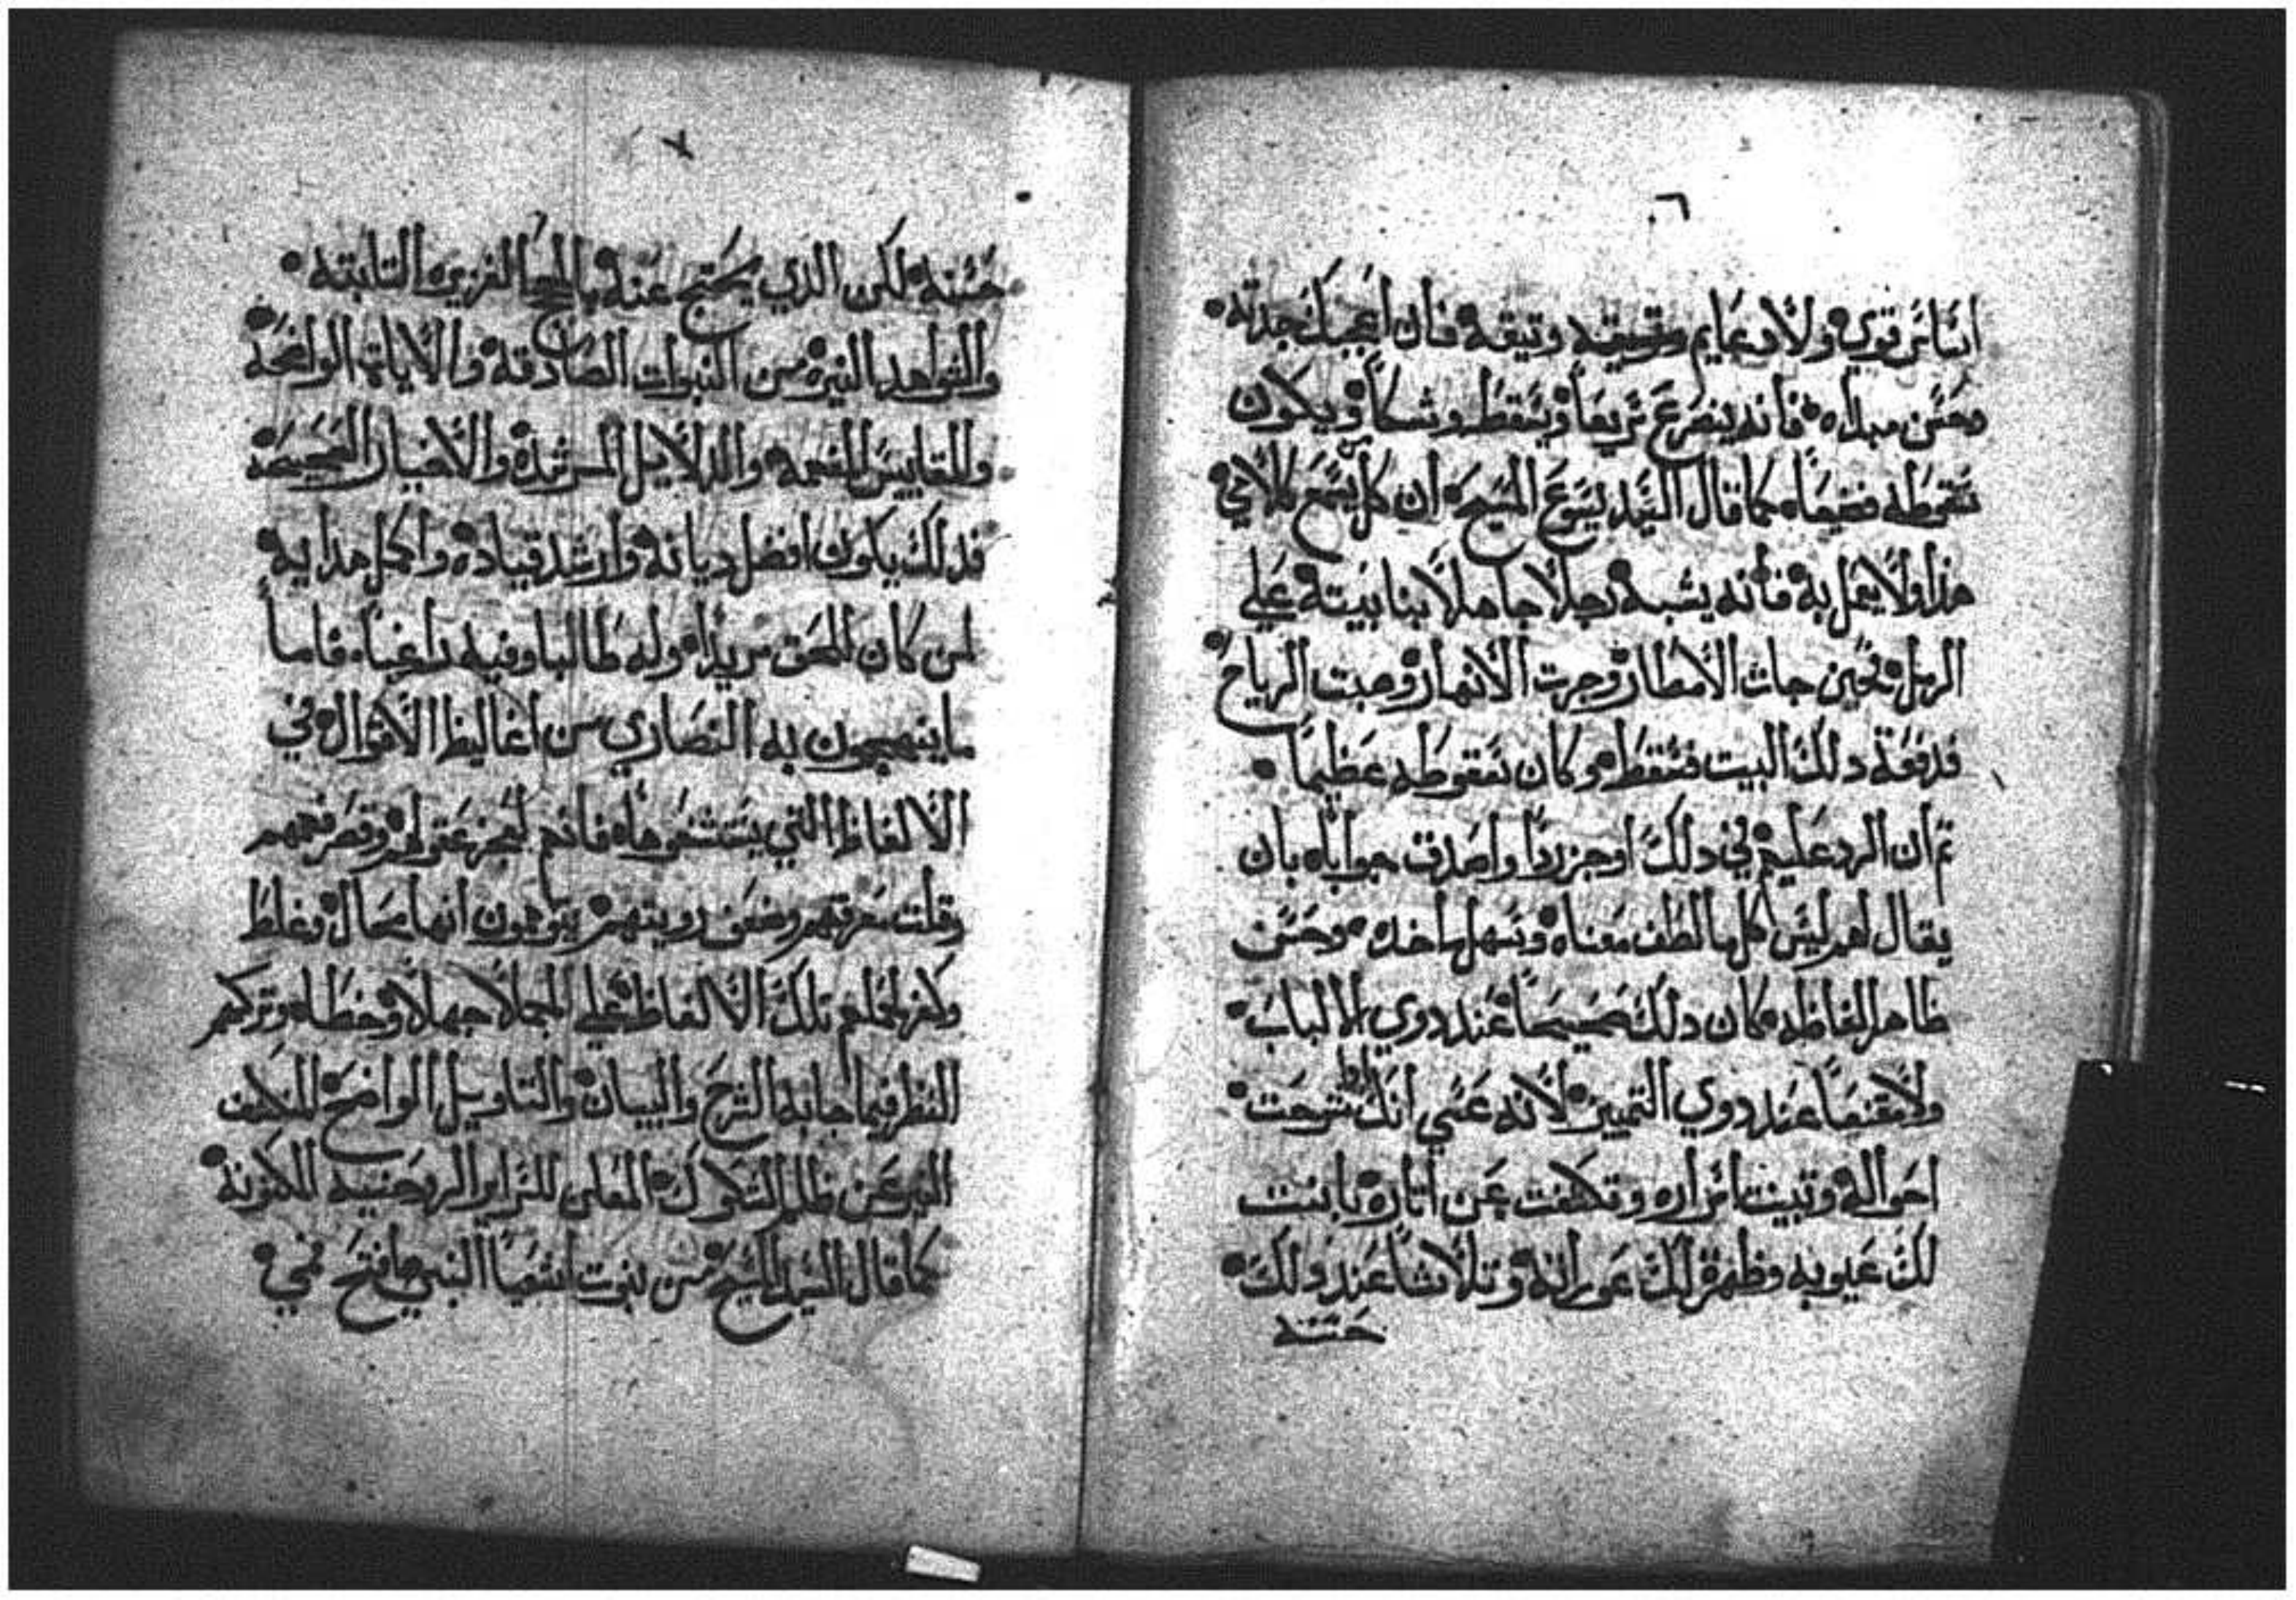 ٦
اساس قوي ولا دعايم وتيقه وتيقه فان اعجبك جدته
وحسن ميداه فانه ينصرع سريعا ويسقط وشكا ويكون
سقوطه فضيحا كما قال السيد يسوع المسيح ان كل يسمع كلامي
هذا ولا يعمل به فانه يشبه رجلا جاهلا بنا بيته علي
الرمل فحين جات الامطار وجرت الانهار وهبت الرياح
فدفعة دلك البيت فسقط وكان سقوطه عظيما
تم ان الرد عليهم في دلك اوجز ردا واصدق جوابا بان
يقال لهم ليس كل ما لطف معناه وسهل ماخده وحسن
ظاهر الفاظه كان دلك صحيحا عند دوي الالباب
ولا مقنعا عند دوي التمييز لانه عسي انك ادا شرحت
احواله وتبينت اسراره وتكشفت عن اتاره بانت
لك عيوبه وظهرة لك عوراته وتلاشا عند دلك
حسنه
٧
حسنه لكن الدي يحتج عنه بالحجج الغزيره التابته
والشواهد النيره من النبوات الصادقه والايات الواضحة
والمقاييس المنعمه والدلايل المرشدة والاخبار الصحيحة
فدلك يكون افضل ديانه وارشد قياده واكمل هدايه
لمن كان للحق مريدا وله طالبا وفيه راغبا فاما
ما ينهجون به النصاري من اغاليظ الاقوال في
الالفاظ التي يستشنعوها فانهم لعجز عقولهم وقصر فهمهم
وقلت معرفتهم وضعف رويتهم يتوهمون انها محال وغلط
وكفر لحملهم تلك الالفاظ علي الجملا جهلا وخطا وتركهم
النظر فيما جا به الشرح والبيان والتاويل الواضح للملحف
المبرعن ظلم الشكوك المعلن للسراير الرهضيه المكنونة
كما قال السيد المسيح من نبوت اشعيا النبي ها فتح فمي